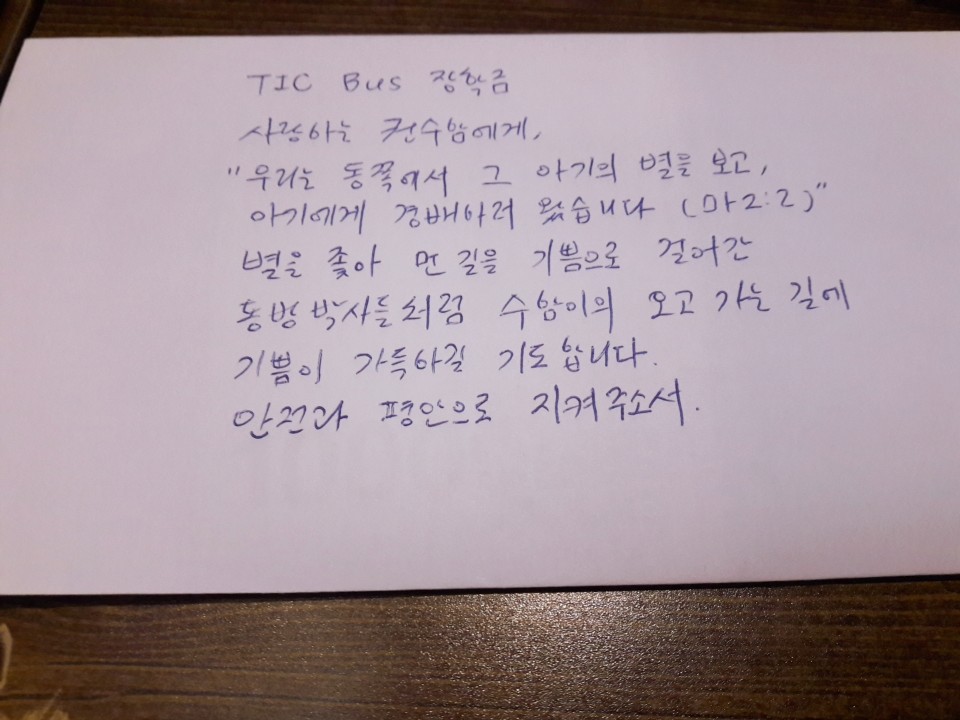 TIC Bus 장학금
사랑하는 전수함에게,
"우리는 동쪽에서 그 아기의 별을 보고,
아기에게 경배하러 왔습니다 (마2:2)"
별을 좇아 먼 길을 기쁨으로 걸어간
동방박사들처럼 수함이의 오고 가는 길에
기쁨이 가득하길 기도합니다.
안전과 평안으로 지켜주소서.